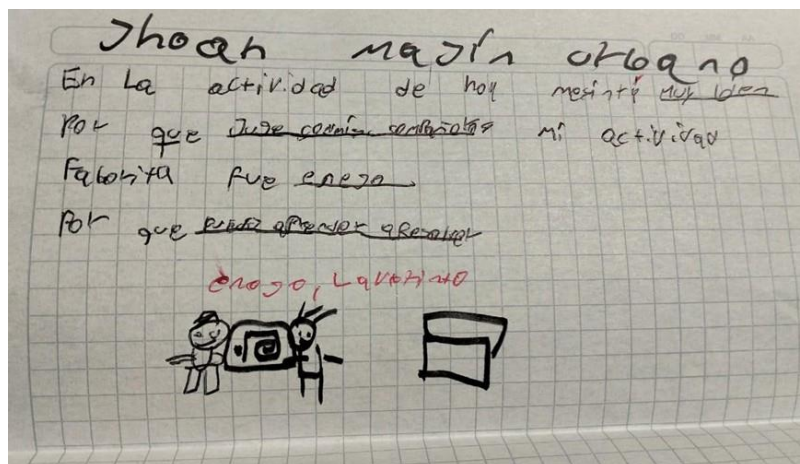 Jhoan majín urbano
En La actividad de hoy mesinti muy bien
Por que Juge conmis compañeros mi actividad
Faborita fue enego
Por que puedo aprender aResolver
enogo, Laverinto